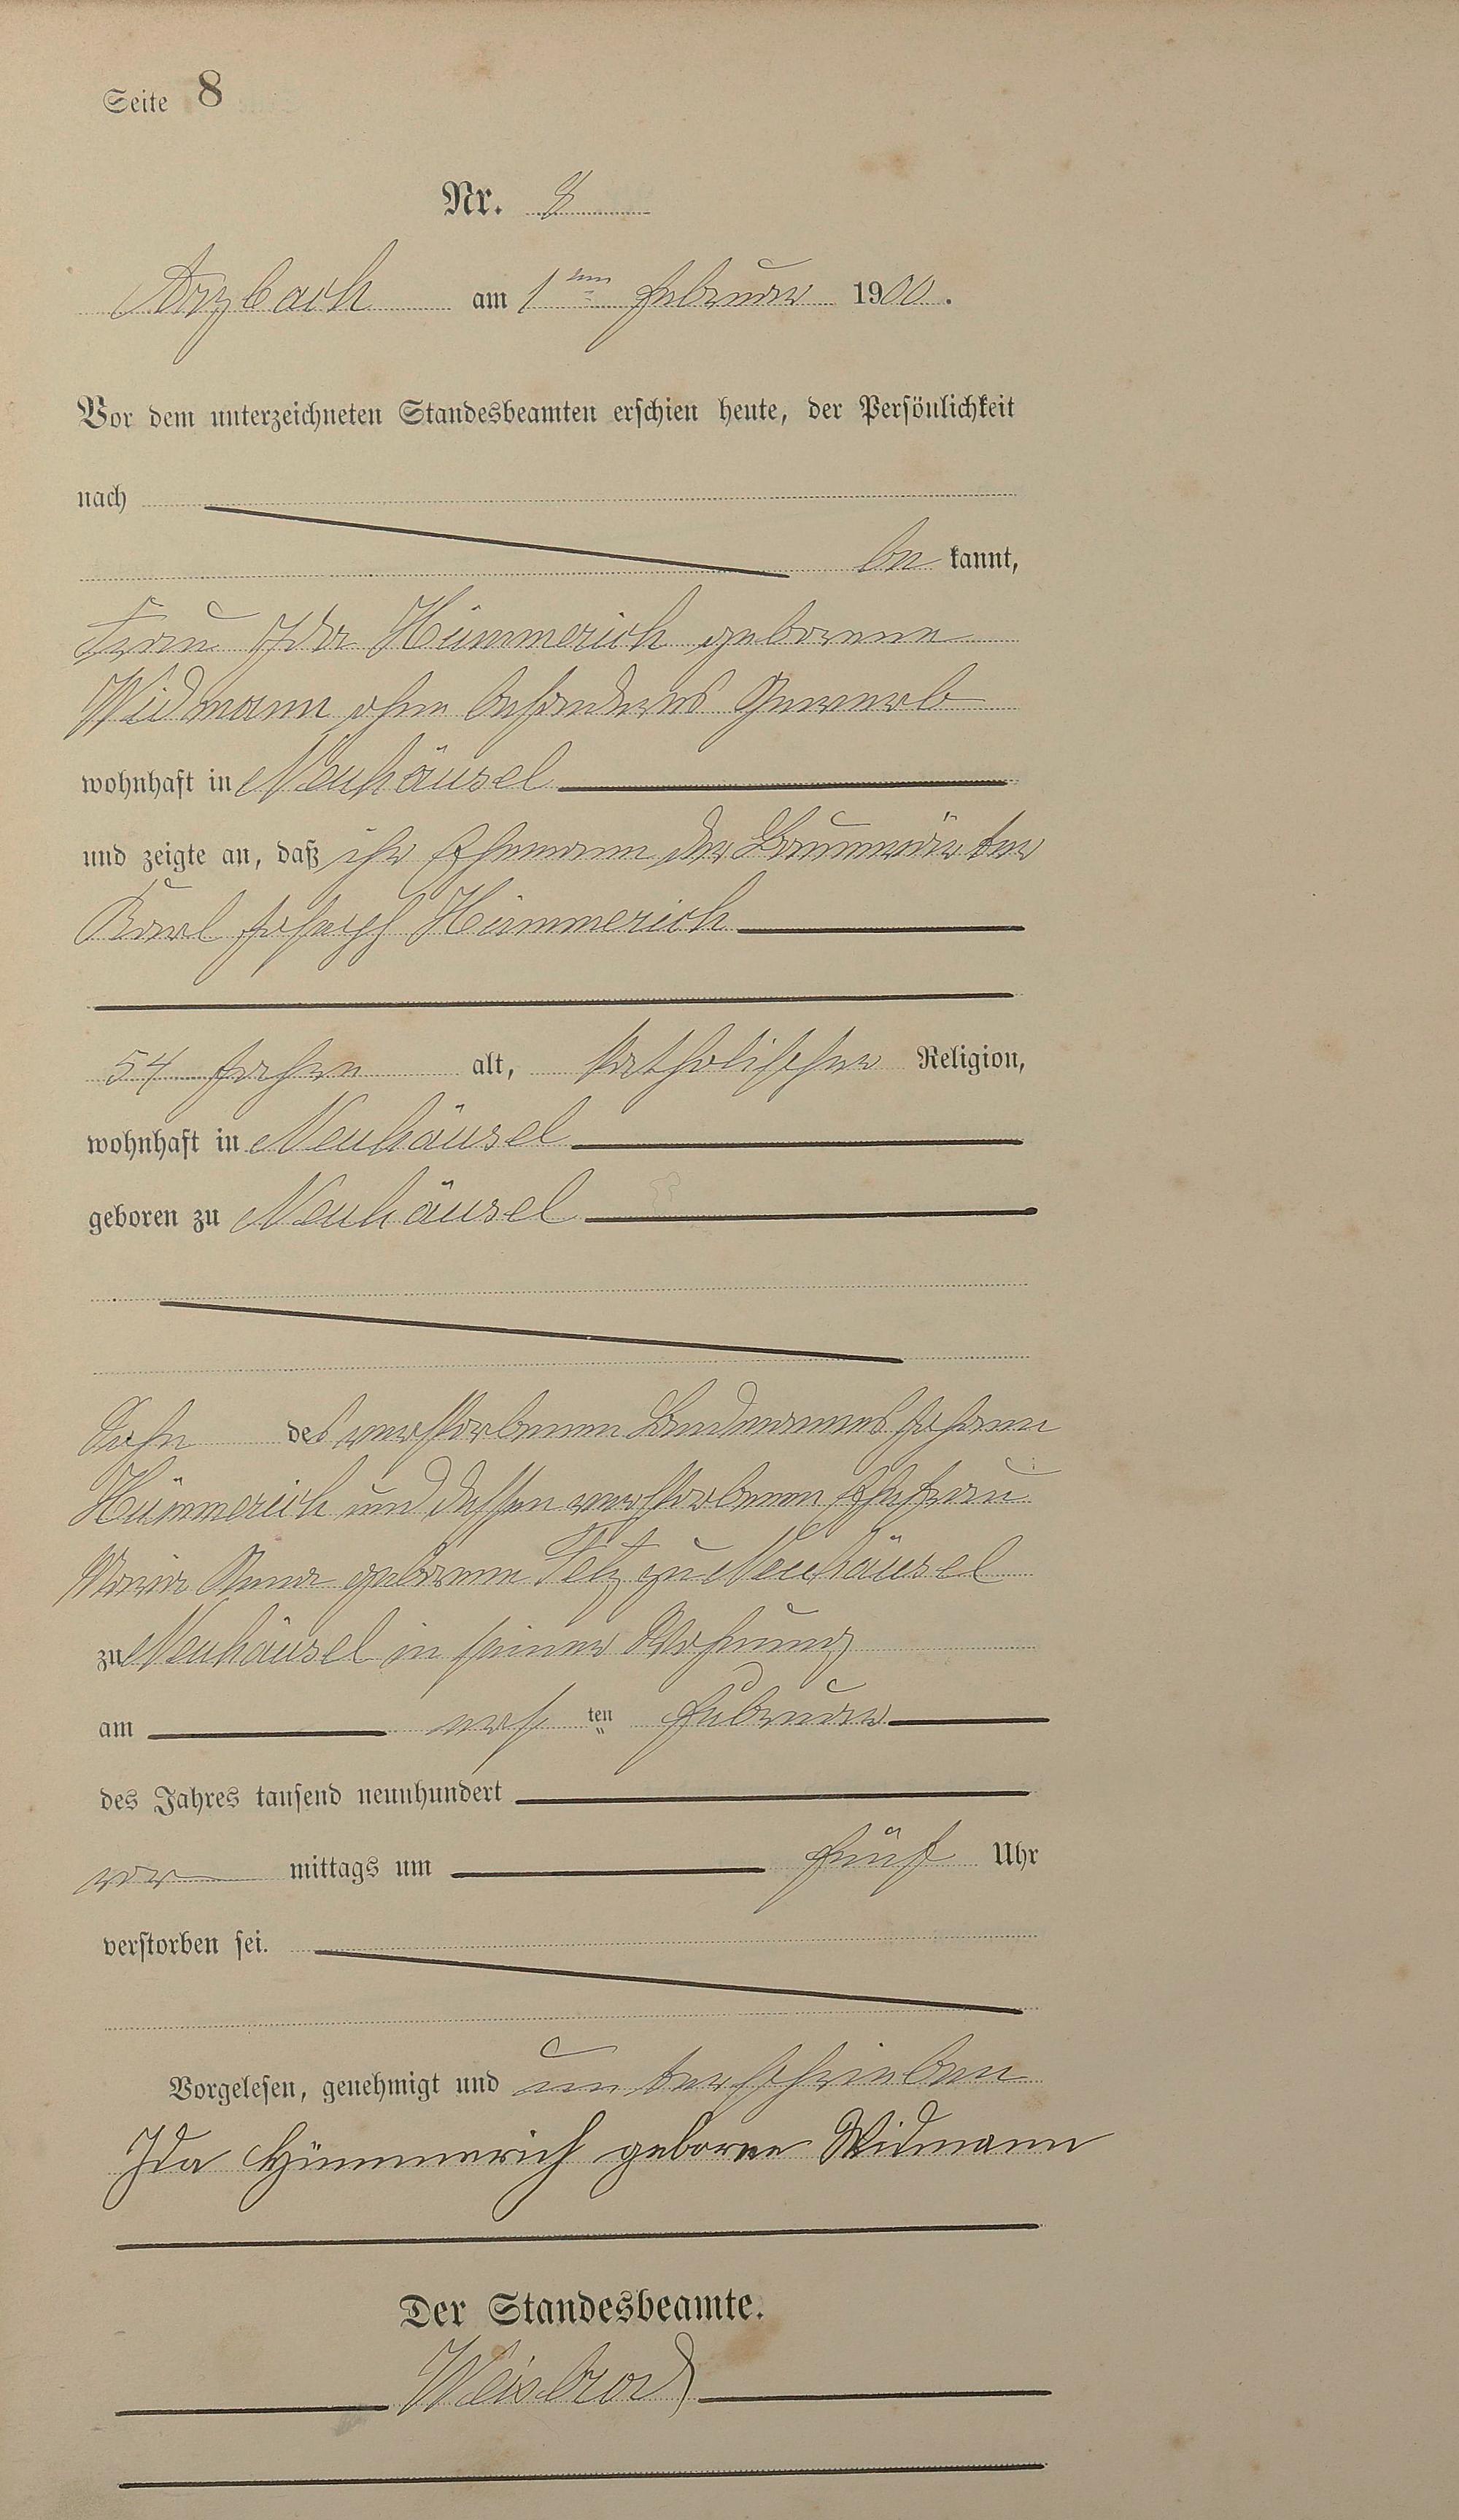 Seite 8
Nr. 8
Arzbach am 1ten Februar 1900.
Vor dem unterzeichneten Standesbeamten erschien heute, der Persönlichkeit
nach
be kannt,
Frau Ida Hümmerich geborene
Widmann ohne besonderes Gewerb
wohnhaft in Neuhäusel
und zeigte an, daß ihr Ehemann der Baumwärter
Karl Joseph Hümmerich
54 Jahre alt, katholischer Religion,
wohnhaft in Neuhäusel
geboren zu Neuhäusel
Sohn des verstorbenen Landmannes Johann
Hümmerich und dessen verstorbenen Ehefrau
Maria Anna geborene Felz zu Neuhäusel
zu Neuhäusel in seiner Wohnung
am ersten Februar
des Jahres tausend neunhundert
vor mittags um fünf Uhr
verstorben sei.
Vorgelesen, genehmigt und unterschrieben
Ida Hümmerich geborne Widmann
Der Standesbeamte.
Weisbrod